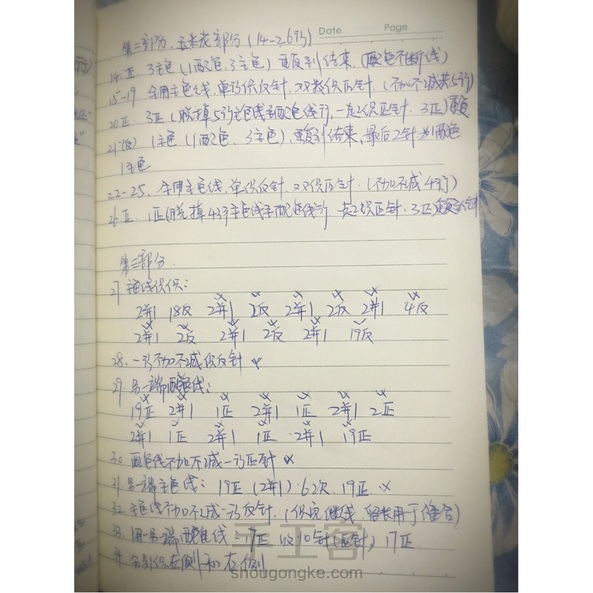 Date. Page.
第二部分. 玉米花部分 (14-26行)
14.正 3主色 (1配色、3主色) 重复到结束. (配色不断线)
15-19 全用主色线, 单行织反针. 双数织正针. (不加不减共5行)
20正. 3正 (脱掉5行主色线至配色线行, 一起织正针. 3正) 重复
21(反) 1主色 (1配色, 3主色), 重复到结束, 最后2针为1配色
1主色
22-25. 全用主色线, 单织反针. 双织正针. (不加不减4行)
26.正. 1正 (脱掉4行主色线至配色线行, 一起织正针. 3正)
第三部分.
27 主色线织:
2并1 18反 2并1 2反 2并1 2反 2并1 4反
2并1 2反 2并1 2反 2并1 19反
28. 一行不加不减织反针
29 另一端配色线:
19正 2并1 1正 2并1 1正 2并1 2正
2并1 1正 2并1 1正 2并1 19正
30 配色线不加不减一行正针
31 另一端主色线: 19正 (2并1) 6次. 19正
32 主色线不加不减一行反针. (织完断线, 留长用于缝合)
33. 用另一端配色线: 17正 收10针(正针) 17正
分别织左侧和右侧
手工客
shougongke.com